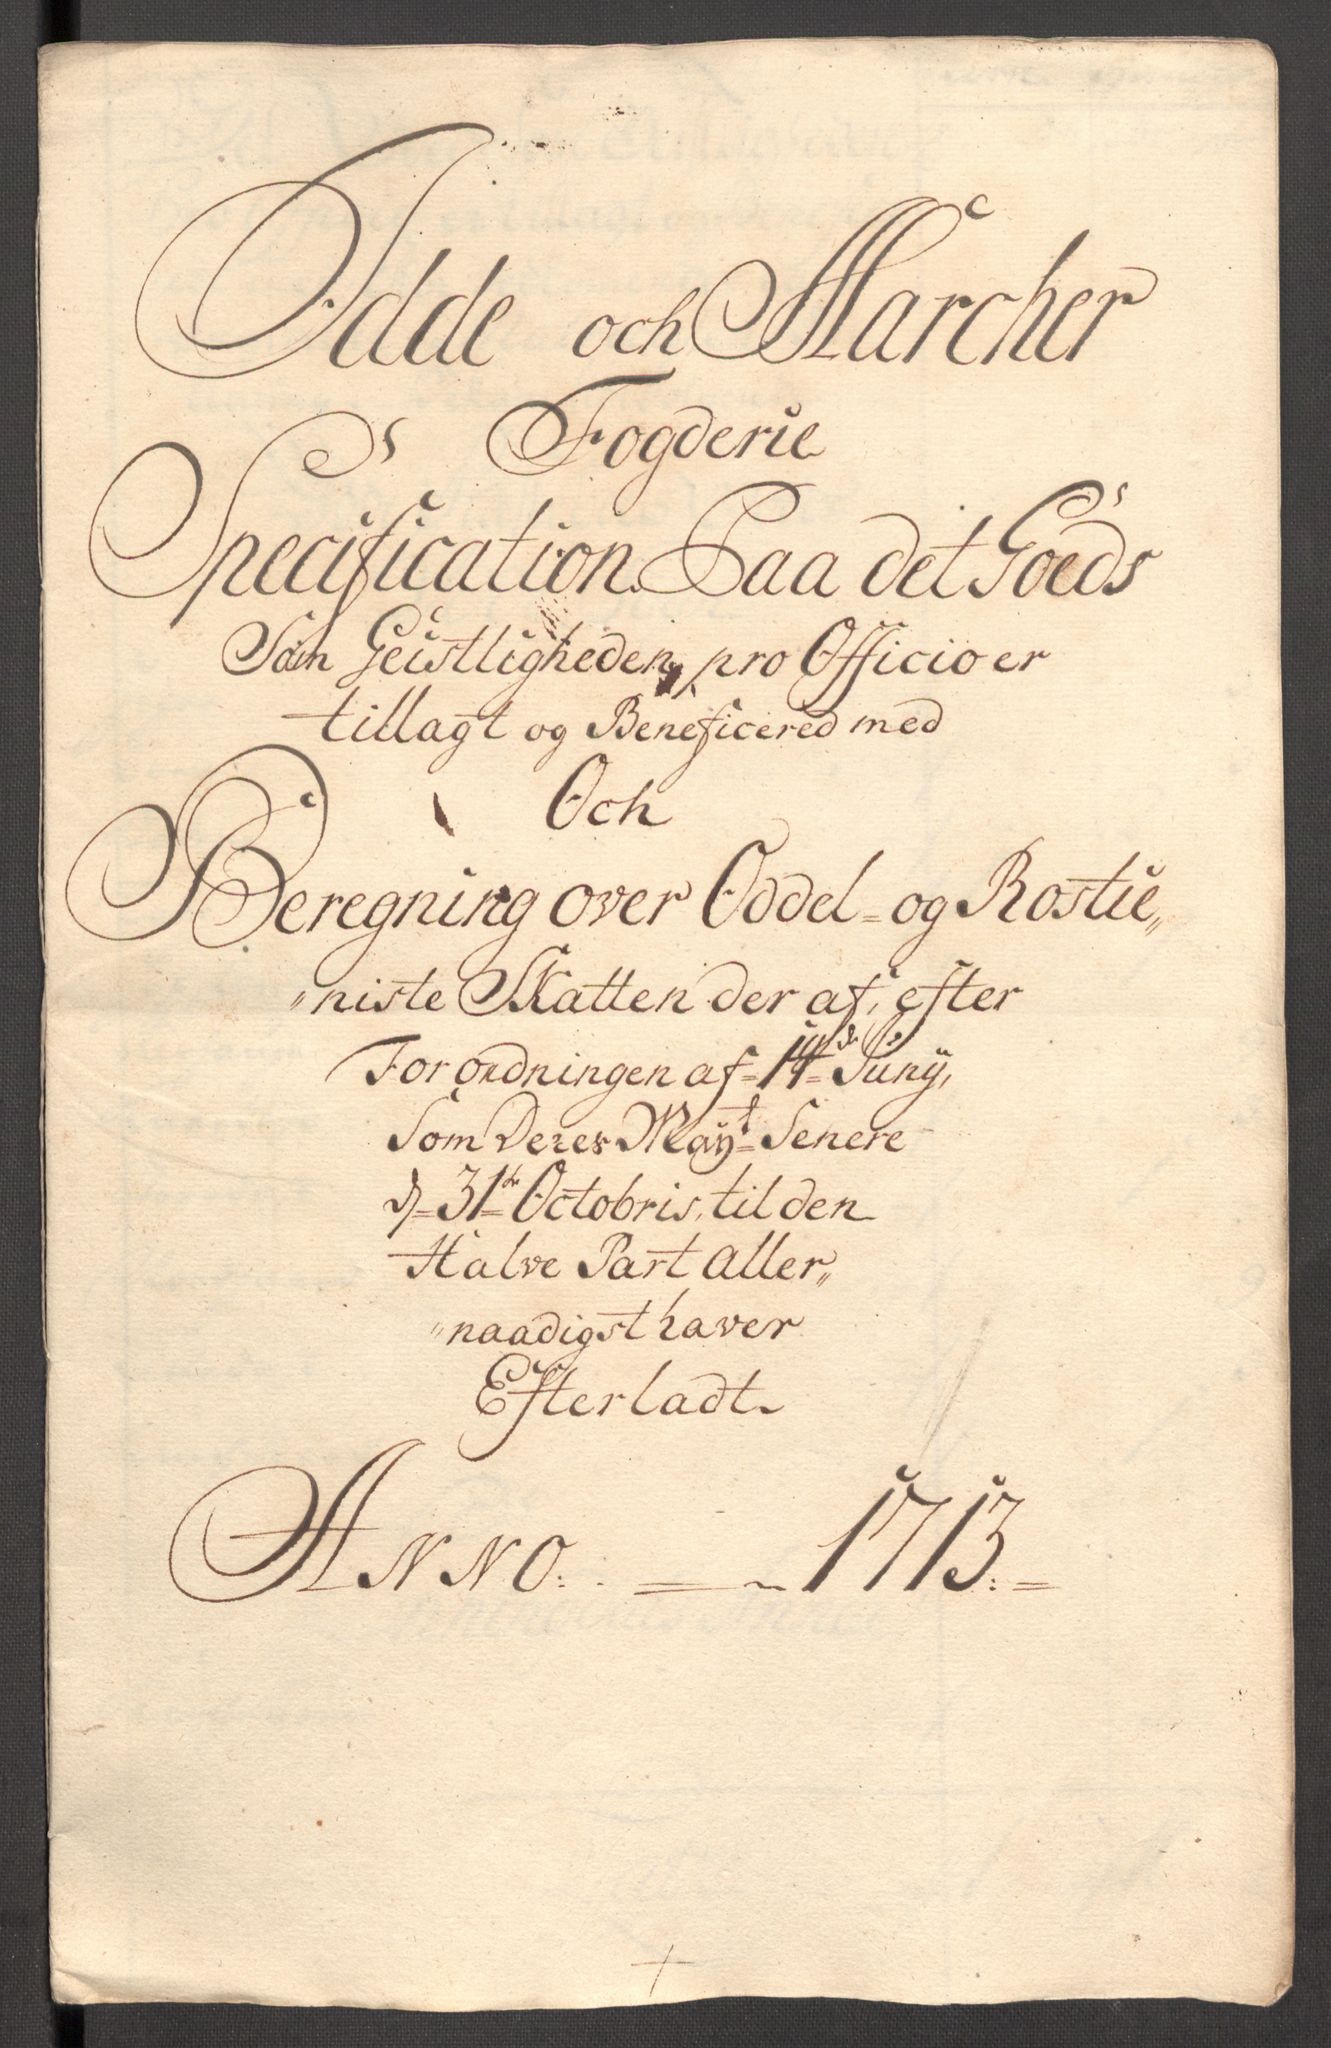 Idde och Marcher
Fogderie
Specification Paa det Goeds
Som Geistligheden pro Officio er
tillagt og Beneficered med
Och
Beregning over Oddel- og Rostie„
„niste Skatten der af, efter
Forordningen af 14de Juny,
Som Deres Mayt Senere
d 31te Octobris, til den
Halve Part aller„
„naadigst haver
Efterladt.
ANNO. 1713.